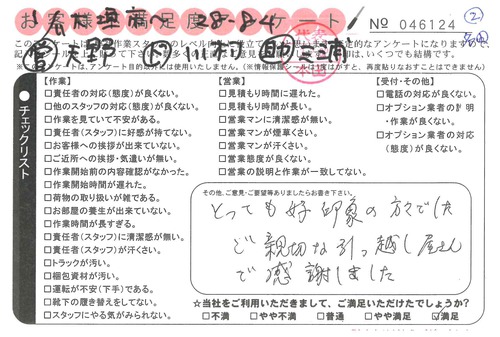 お客様満足度アンケート
28-8-4
No 046124
②
【作業】
□責任者の対応(態度)が良くない。
□他のスタッフの対応(態度)が良くない。
□作業を見ていて不安がある。
□責任者(スタッフ)に好感が持てない。
□お客様への挨拶が出来ていない。
□ご近所への挨拶・気遣いが無い。
□作業開始前の内容確認がなかった。
□作業開始時間が遅れた。
□荷物の取り扱いが雑である。
□お部屋の養生が出来ていない。
□作業時間が長すぎる。
□責任者(スタッフ)に清潔感が無い。
□責任者(スタッフ)が汗くさい。
□トラックが汚い。
□梱包資材が汚い。
□運転が不安(下手)である。
□靴下の履き替えをしてない。
□スタッフにやる気がみられない。
【営業】
□見積もり時間に遅れた。
□見積もり時間が長い。
□営業マンに清潔感が無い。
□営業マンが煙草くさい。
□営業マンが汗くさい。
□営業態度が良くない。
□営業の説明と作業が一致してない。
【受付・その他】
□電話の対応が良くない。
□オプション業者の説明
・作業が良くない。
□オプション業者の対応
(態度)が良くない。
チェックリスト
その他、ご意見・ご要望等ありましたらお書き下さい。
とっても好印象の方々でした
ご親切な引っ越し屋さん
で感謝しました
☆当社をご利用いただきまして、ご満足いただけたでしょうか?
□不満 □やや不満 □普通 □やや満足 ☑満足